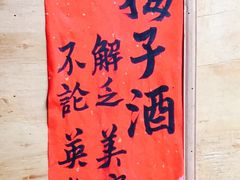 梅子酒
解乏美
不論英